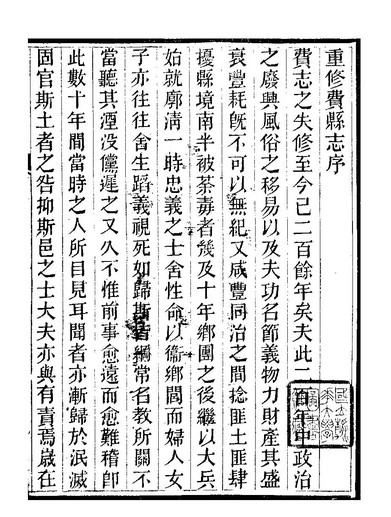 重修費縣志序
費志之失修至今已二百餘年矣夫此二百年中政治
之廢興風俗之移易以及夫功名節義物力財產其盛
衰豐耗旣不可以無紀又咸豐同治之間捻匪土匪肆
擾縣境南半被荼毒者幾及十年鄉團之後繼以大兵
始就廓清一時忠義之士舍性命以衞鄉閭而婦人女
子亦往往舍生蹈義視死如歸斯皆綱常名教所關不
當聽其湮没儻遲之又久不惟前事愈遠而愈難稽卽
此數十年間當時之人所目見耳聞者亦漸歸於泯滅
固官斯土者之咎抑斯邑之士大夫亦與有責焉歲在